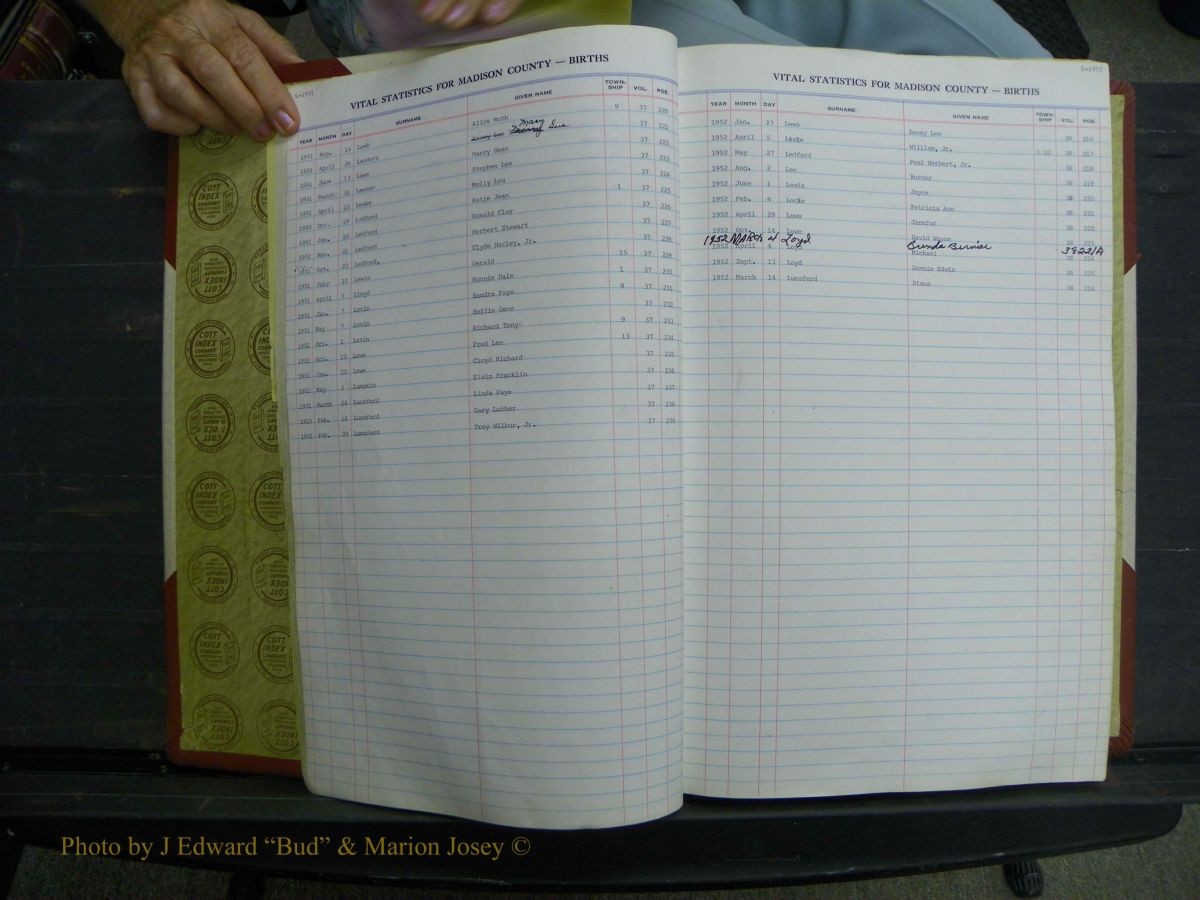 L-1951
VITAL STATISTICS FOR MADISON COUNTY — BIRTHS
YEAR MONTH DAY SURNAME GIVEN NAME TOWN-SHIP VOL. PGE.
1951 Aug. 14 Lamb Alice Ruth 9 37 220
1951 April 26 Landers Mary Sue 37 221
1951 June 13 Laws Harry Dean 37 222
1951 March 31 Lawson Stephen Lee 37 223
1951 April 18 Leake Molly Lou 37 224
1950 Oct. 19 Ledford Katie Jean 1 37 225
1951 Jan. 10 Ledford Ronald Clay 37 226
1951 Nov. 21 Ledford Herbert Stewart 37 227
1951 Oct. 23 Ledford, Clyde Harley, Jr. 37 228
1951 July 10 Lewis Gerald 15 37 229
1951 April 7 Lloyd Ronnie Dale 1 37 230
1951 Jan. 7 Sandra Faye 9 37 231
1951 May 7 Gene 37 232
Oct. 1 Richard Tony 9 37 233
1951 Oct. 13 Lowe Fred Lee 13 37 234
1951 Jan. 23 Lowe Cloyd Richard 37 235
1951 May 1 Lumpkin Elvin Franklin 37 236
1951 March 24 Lunsford Linda Faye 37 237
Feb. 14 Lunsford Gary Luther 37 238
1951 Feb. 23 Lunsford Troy Wilbur, Jr. 37 239
L-1952
VITAL STATISTICS FOR MADISON COUNTY — BIRTHS
YEAR MONTH DAY SURNAME GIVEN NAME TOWN-SHIP VOL. PGE.
1952 Jan. 23 Laws Danny Lee 38 216
1952 April 5 Leake William, Jr. 10 38 217
1952 May 27 Ledford Paul Herbert, Jr. 38 218
1952 Aug. 2 Lee Buster 38 219
1952 June 1 Lewis Joyce 38 220
1952 Feb. 4 Locke Patricia Ann 38 221
1952 April 29 Lowe Janefer 38 222
1952 Oct. 14 Lowe David Wayne 38 223
1952 MARCH 4 Loyd Brenda Bernice 38 221A
1952 April 4 Loyd Michael 38 224
1952 Sept. 13 Loyd Donnie Edwin 38 225
1952 March 14 Lunsford Diana 38 226
COTT INDEX COMPANY
Photo by J Edward “Bud” & Marion Josey ©